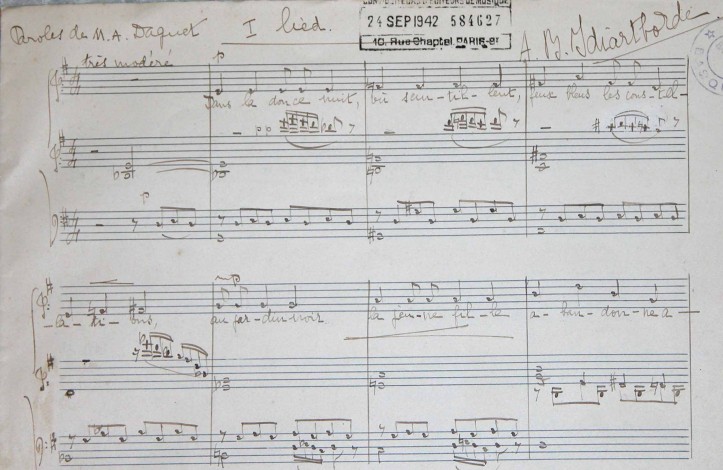 Paroles de M. A. Daquet
I lied.
24 SEP 1942 584627
10. Rue Chaptal PARIS-9e
A. B. Idiartborde
très modéré
p
Dans la douce nuit, où scin-til-lent, feux bleus les cons-tel-
pp
p
-la-ti-ons,
p
au jar-din noir la jeu-ne fil-le a-ban-don-ne a-